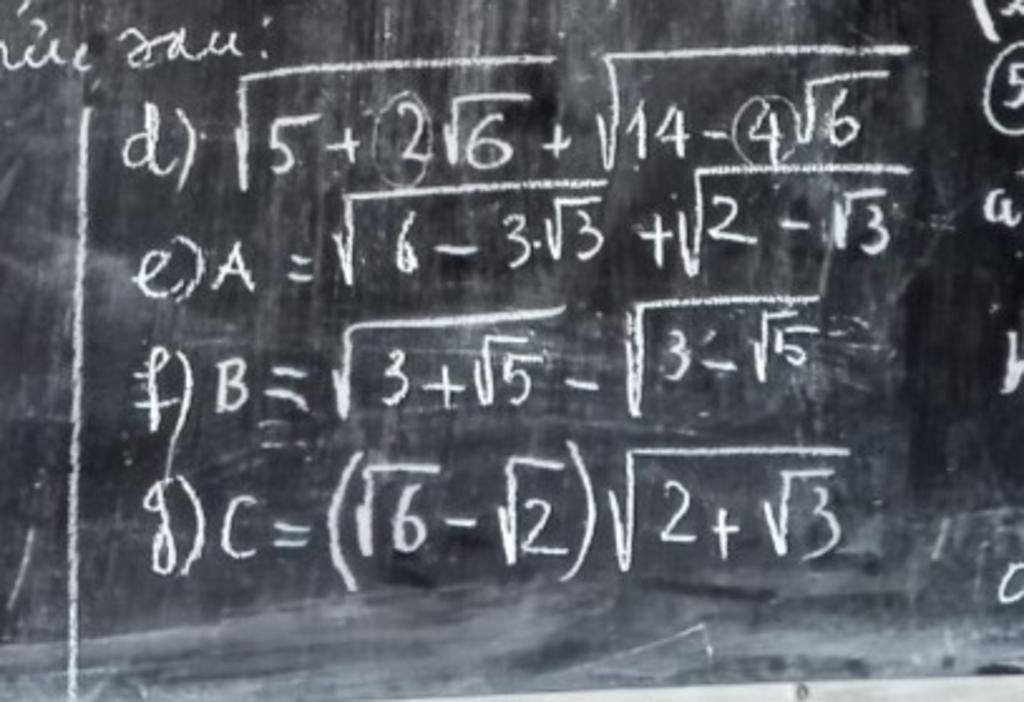 sau:
d) √(5 + 2√6) + √(14 - 4√6)
e) A = √(6 - 3.√3) + √(2 - √3)
f) B = √(3 + √5) - √(3 - √5)
g) C = (√6 - √2)√(2 + √3)
5
a